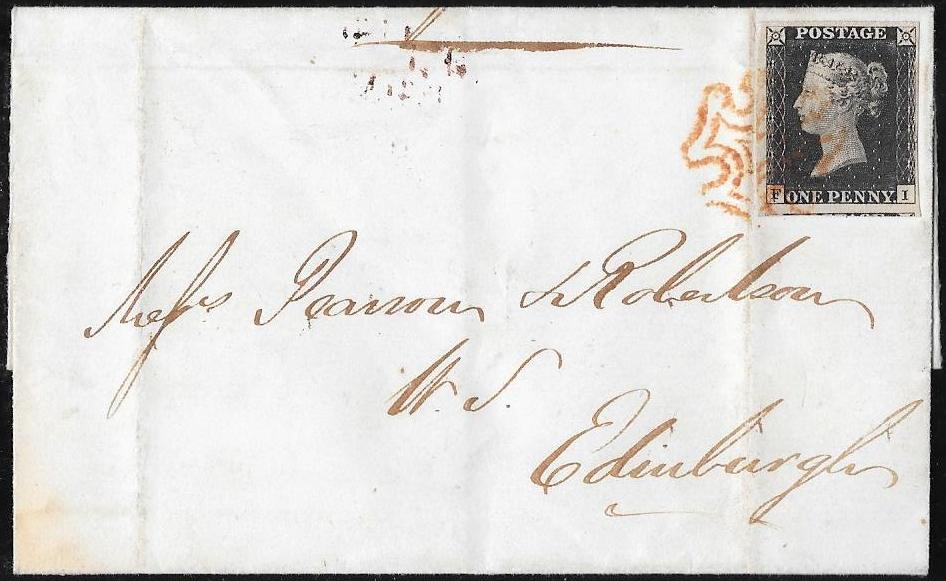 POSTAGE
F ONE PENNY I
Messrs Pearson & Robertson
W.S.
Edinburgh